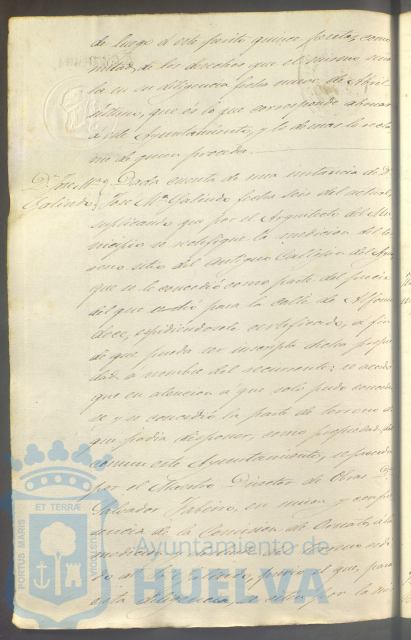 de luego á este perito quince pesetas, como
mitad de los derechos que el mismo seña
la en su diligencia fecha nueve de Abril
último, que és lo que corresponde abonar
á este Ayuntamiento, y lo demas lo recla
me de quien proceda.
D. José Mª Galindo
Dada cuenta de una instancia de D.
José Mª Galindo fecha seis del actual,
suplicando que por el Arquitecto del Mu
nicipio se rectifique la medicion del te
rreno sitio del antiguo Callejon del
que se le concedió como parte del precio
del que cedió para la calle de Alfonso
doce, espidiendosele certificado, a fin
de que pueda ser inscripta dicha propie
dad a nombre del recurrente; se acordó
que en atencion a que solo pudo conceder
se y se concedió la parte de terreno de
que podia disponer, como propiedad del
comun este Ayuntamiento, se proceda
por el Maestro Director de Obras D.
Salvador en union y
de la Comision de Ornato, a la
medicion del terreno
do al Galindo, para
esta diligencia,
PORTUS MARIS
ET TERRÆ
CUSTODIA
Ayuntamiento de
HUELVA